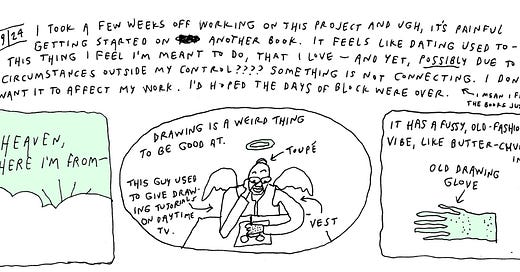 9/24
I TOOK A FEW WEEKS OFF WORKING ON THIS PROJECT AND UGH, IT'S PAINFUL
GETTING STARTED ON ANOTHER BOOK. IT FEELS LIKE DATING USED TO-
THIS THING I FEEL I'M MEANT TO DO, THAT I LOVE - AND YET, POSSIBLY DUE TO
CIRCUMSTANCES OUTSIDE MY CONTROL???? SOMETHING IS NOT CONNECTING. I DON
WANT IT TO AFFECT MY WORK. I'D HOPED THE DAYS OF BLOCK WERE OVER.
I MEAN I F
THE BOOKS JUS
HEAVEN,
HERE I'M FROM-
DRAWING IS A WEIRD THING
TO BE GOOD AT.
TOUPÉ
THIS GUY USED
TO GIVE DRAW-
ING TUTORIALS
ON DAYTIME
TV.
VEST
IT HAS A FUSSY, OLD-FASHIO
VIBE, LIKE BUTTER-CHU
OLD DRAWING
GLOVE